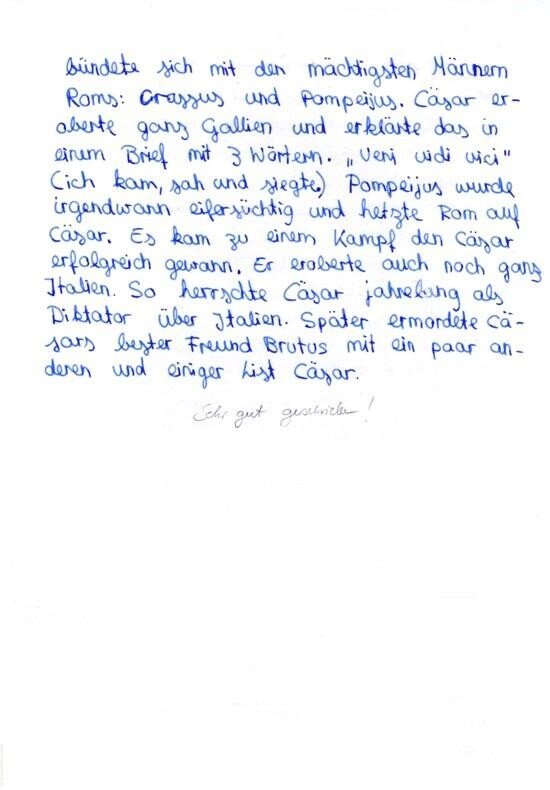 bündete sich mit den mächtigsten Männern
Roms: Crassus und Pompeijus. Cäsar er-
oberte ganz Gallien und erklärte das in
einem Brief mit 3 Wörtern. „Veni vidi vici"
(ich kam, sah und siegte.) Pompeijus wurde
irgendwann eifersüchtig und hetzte Rom auf
Cäsar. Es kam zu einem Kampf den Cäsar
erfolgreich gewann. Er eroberte auch noch ganz
Italien. So herrschte Cäsar jahrelang als
Diktator über Italien. Später ermordete Cä-
sars bester Freund Brutus mit ein paar an-
deren und einiger List Cäsar.
Sehr gut geschrieben!